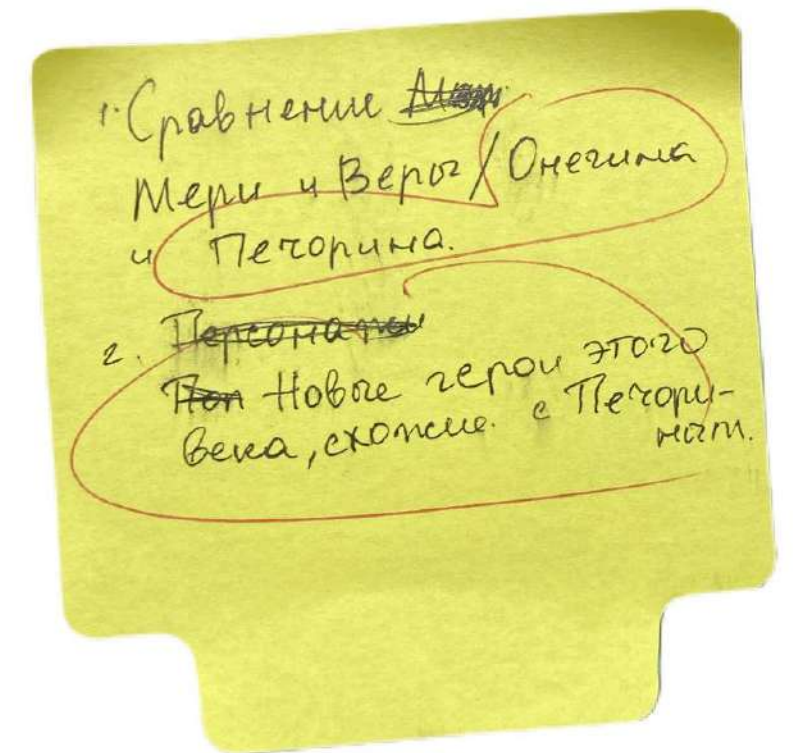 1. Сравнение
Мери и Веры / Онегина
и Печорина.
2. Персонажи
Новые герои этого
века, схожие с Печори-
ным.